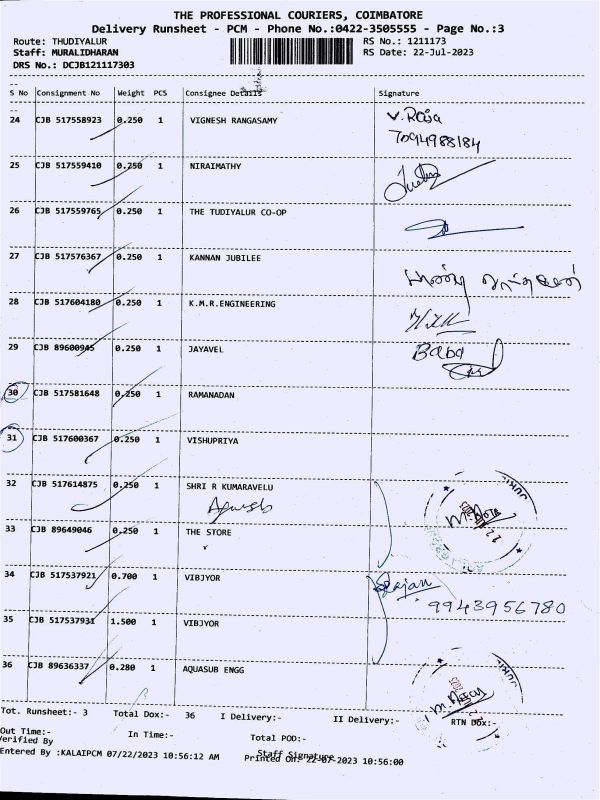 THE PROFESSIONAL COURIERS, COIMBATORE
Delivery Runsheet - PCM - Phone No.:0422-3505555 - Page No.:3
Route: THUDIYALUR RS No.: 1211173
Staff: MURALIDHARAN RS Date: 22-Jul-2023
DRS No.: DCJB121117303
S No Consignment No Weight PCS Consignee Details Signature
24 CJB 517558923 0.250 1 VIGNESH RANGASAMY V. Raja
7094988184
25 CJB 517559410 0.250 1 NIRAIMATHY
26 CJB 517559765 0.250 1 THE TUDIYALUR CO-OP
27 CJB 517576367 0.250 1 KANNAN JUBILEE
28 CJB 517604180 0.250 1 K.M.R.ENGINEERING
29 CJB 89600945 0.250 1 JAYAVEL Baba
30 CJB 517581648 0.250 1 RAMANADAN
31 CJB 517600367 0.250 1 VISHUPRIYA
32 CJB 517614875 0.250 1 SHRI R KUMARAVELU
33 CJB 89649046 0.250 1 THE STORE
34 CJB 517537921 0.700 1 VIBJYOR Rajan
9943956780
35 CJB 517537931 1.500 1 VIBJYOR
36 CJB 89636337 0.280 1 AQUASUB ENGG
Tot. Runsheet:- 3 Total Dox:- 36 I Delivery:- II Delivery:- RTN Dox:-
Out Time:- In Time:- Total POD:-
Verified By Staff Signature
Entered By :KALAIPCM 07/22/2023 10:56:12 AM Printed On: 22-07-2023 10:56:00